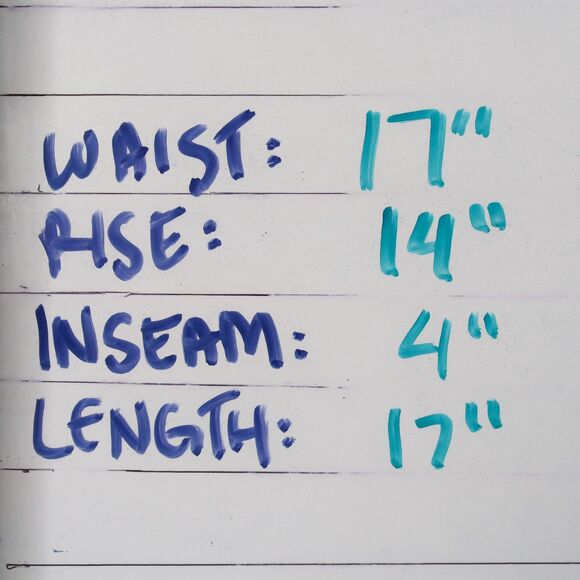 WAIST: 17"
RISE: 14"
INSEAM: 4"
LENGTH: 17"